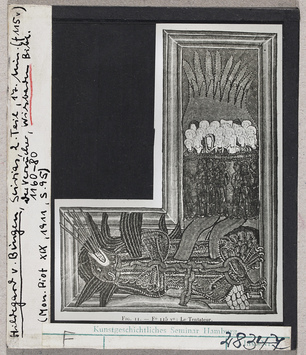 Hildegard v. Bingen, Scivias, 2. Teil, 17. Min. (f 115 v)
der Versucher, Wiesbaden Bibl.
1160-80
(Mon. Piot XIX, 1911, S. 95)
FIG. 11. — Fº 115 vº: Le Tentateur.
Kunstgeschichtliches Seminar Hamb
F
28347